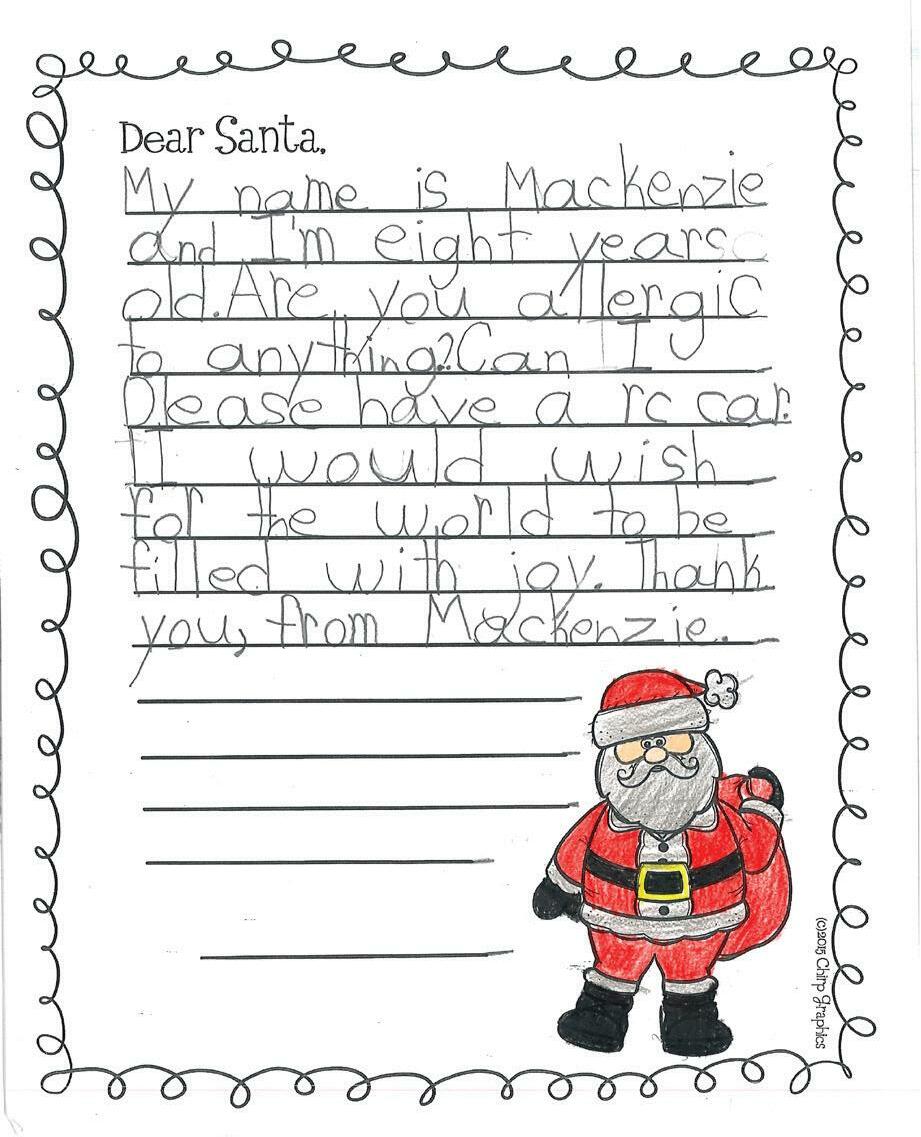 Dear Santa,
My name is Mackenzie
and I'm eight years
old. Are you allergic
to anything? Can I
Please have a rc car.
I would wish
for the world to be
filled with joy. Thank
you, from Mackenzie.
(c)2015 Chirp Graphics